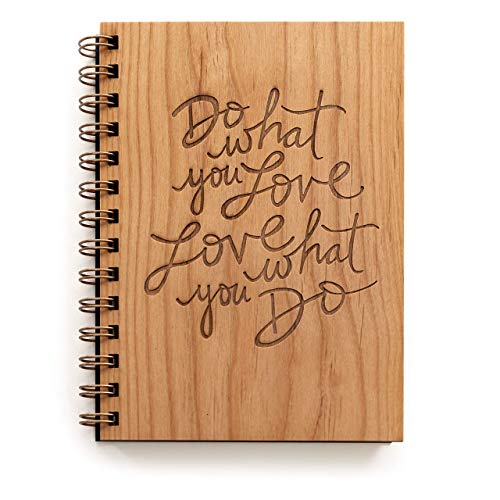 Do
what
you Love
Love
what
you Do